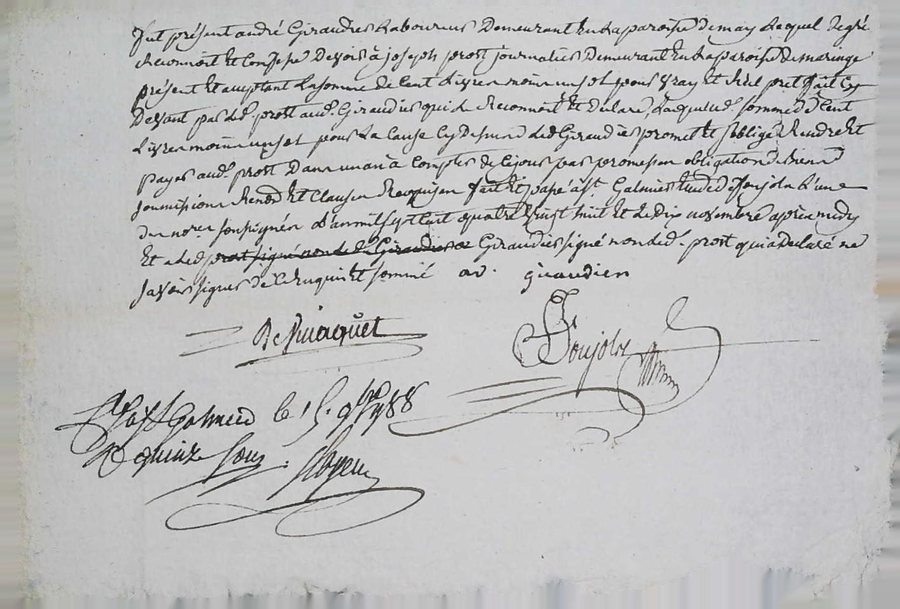 fut présent andré Giraudier Laboureur Demeurant En La paroisse de may Lequel de gré
Reconnoit Et Confesse Devoir à joseph prost journalier Demeurant En La paroisse de maringe
présent Et acceptant La somme de Cent Livres moins un sol pour vray Et Réel prêt fait Cy
Devant par led. prost aud. Giraudier qui le Reconnoit Et declare, Laquelle d. somme de Cent
Livres moins un sol pour La Cause Cy Dessus led Giraudier promet Et soblige Rendre Et
payer aud. prost Dans un an à Compter de Ce jour par promesse obligation de biens
soumissions Renon. Et Clauses Requises fait Et passé à st Galmier Etude de Soujolx L'une
des nores. soussignés L'an mil sept cent quatre vingt huit Et Le dix novembre après midy
Et a led prost signé non led. Giraudier Giraudier signé non led. prost qui a declaré ne
savoir signer de Ce Enquis Et sommé ad. giraudier
Soujolx
galmier le 15. 9bre 1788
R quinze sous.